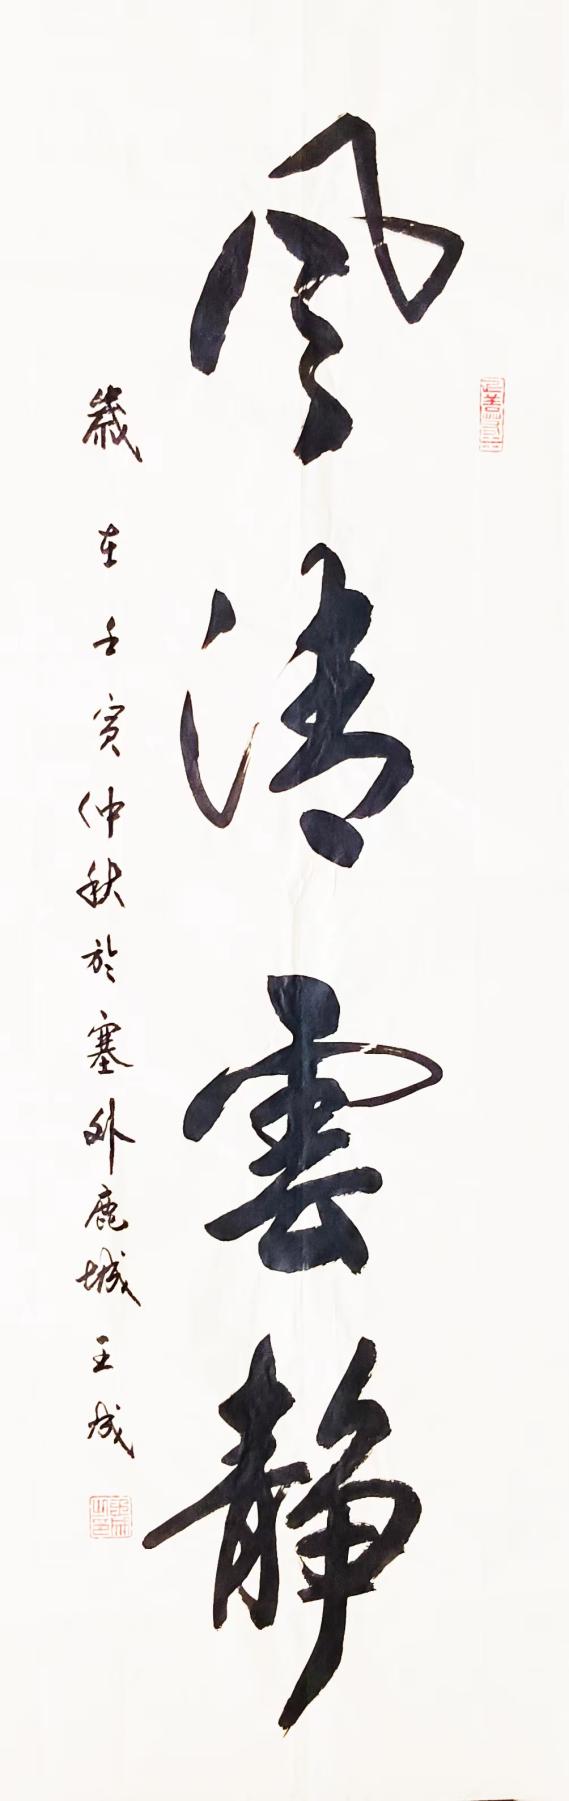 风清雲靜
歲在壬寅仲秋於塞外鹿城王成